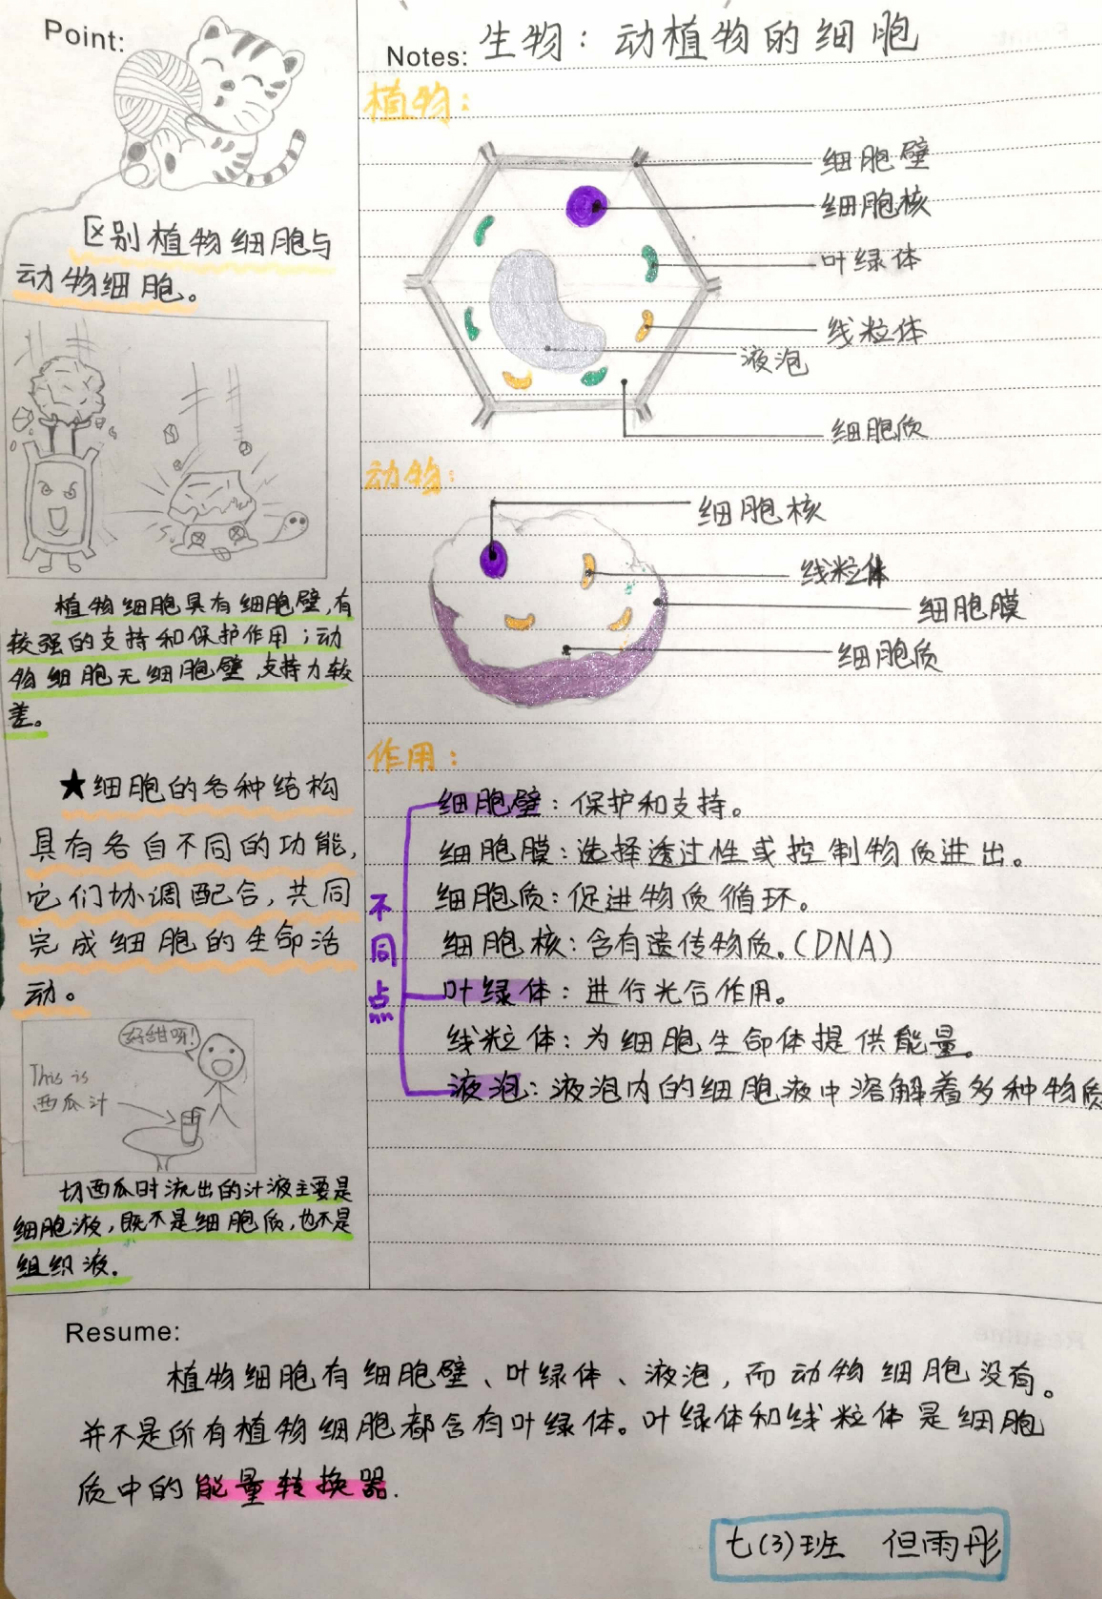 Point:
区别植物细胞与
动物细胞。
植物细胞具有细胞壁,有
较强的支持和保护作用;动
物细胞无细胞壁,支持力较
差。
★细胞的各种结构
具有各自不同的功能,
它们协调配合,共同
完成细胞的生命活
动。
好甜呀!
This is
西瓜汁
切西瓜时流出的汁液主要是
细胞液,既不是细胞质,也不是
组织液。
Notes: 生物:动植物的细胞
植物:
细胞壁
细胞核
叶绿体
线粒体
液泡
细胞质
动物:
细胞核
线粒体
细胞膜
细胞质
作用:
不同点
细胞壁:保护和支持。
细胞膜:选择透过性或控制物质进出。
细胞质:促进物质循环。
细胞核:含有遗传物质。(DNA)
叶绿体:进行光合作用。
线粒体:为细胞生命体提供能量。
液泡:液泡内的细胞液中溶解着多种物质
Resume:
植物细胞有细胞壁、叶绿体、液泡,而动物细胞没有。
并不是所有植物细胞都含有叶绿体。叶绿体和线粒体是细胞
质中的能量转换器.
七(3)班 但雨彤